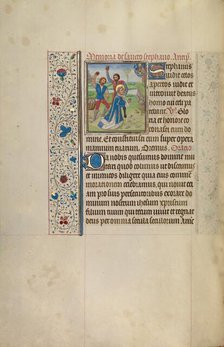 Memoria de sancto stephano. Antiph
Stephanus
vidit celos
apertos vidit et
introivit beatus
homo cui celi
patebant. V. Glo
ria et honore co
ronasti eum do
mine. Et constituisti eum super
opera manuum tuarum. Oremus. Oratio
Da nobis quesumus domine imi
tari quod colimus ut discamus
et inimicos diligere quia eius
celebramus qui novit
eciam pro suis persecutoribus exorare do
minum nostrum ihesum xpristum filium
tuum. Qui tecum vivit et regnat
deus per omnia secula seculorum Amen